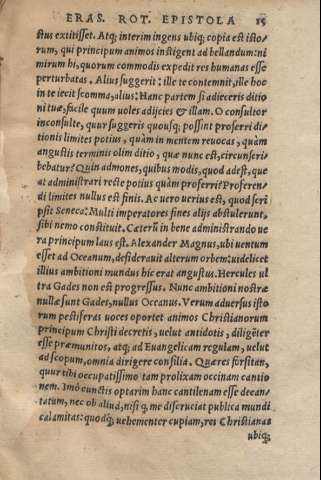 ERAS. ROT. EPISTOLA 15
ctus extitisset. Atq; interim ingens ubiq; copia est isto-
rum, qui principum animos instigent ad bellandum: ni
mirum hi, quorum commodis expedit res humanas esse
perturbatas. Alius suggerit: ille te contemnit, ille hoc
in te iecit scomma, alius: Hanc partem si adieceris ditio
ni tuæ, facile quum uoles adijcies & illam. O consultor
inconsulte, quur suggeris quousq; possint proferri di-
tionis limites potius, quàm in mentem reuocas, quàm
angustis terminis olim ditio, quæ nunc est, circunscri-
bebatur? Quin admones, quibus modis, quod adest, que
at administrari recte potius quàm proferri? Proferen-
di limites nullus est finis. Ac uero uerius est, quod scri
psit Seneca: Multi imperatores fines alijs abstulerunt,
sibi nemo constituit. Cæterũ in bene administrando ue
ra principum laus est. Alexander Magnus, ubi uentum
esset ad Oceanum, desiderauit alterum orbem: uidelicet
illius ambitioni mundus hic erat angustus. Hercules ul
tra Gades non est progressus. Nunc ambitioni nostræ
nullæ sunt Gades, nullus Oceanus. Verum aduersus isto
rum pestiferas uoces oportet animos Christianorum
principum Christi decretis, uelut antidotis, diligẽter
esse præmunitos, atq; ad Euangelicam regulam, uelut
ad scopum, omnia dirigere consilia. Quæres forsitan,
quur tibi occupatissimo tam prolixam occinam cantio
nem. Imò cunctis optarim hanc cantilenam esse decan-
tatum, nec ob aliud, nisi q̃ me discruciat publica mundi
calamitas: quodq; uehementer cupiam, res Christianas
ubiq;